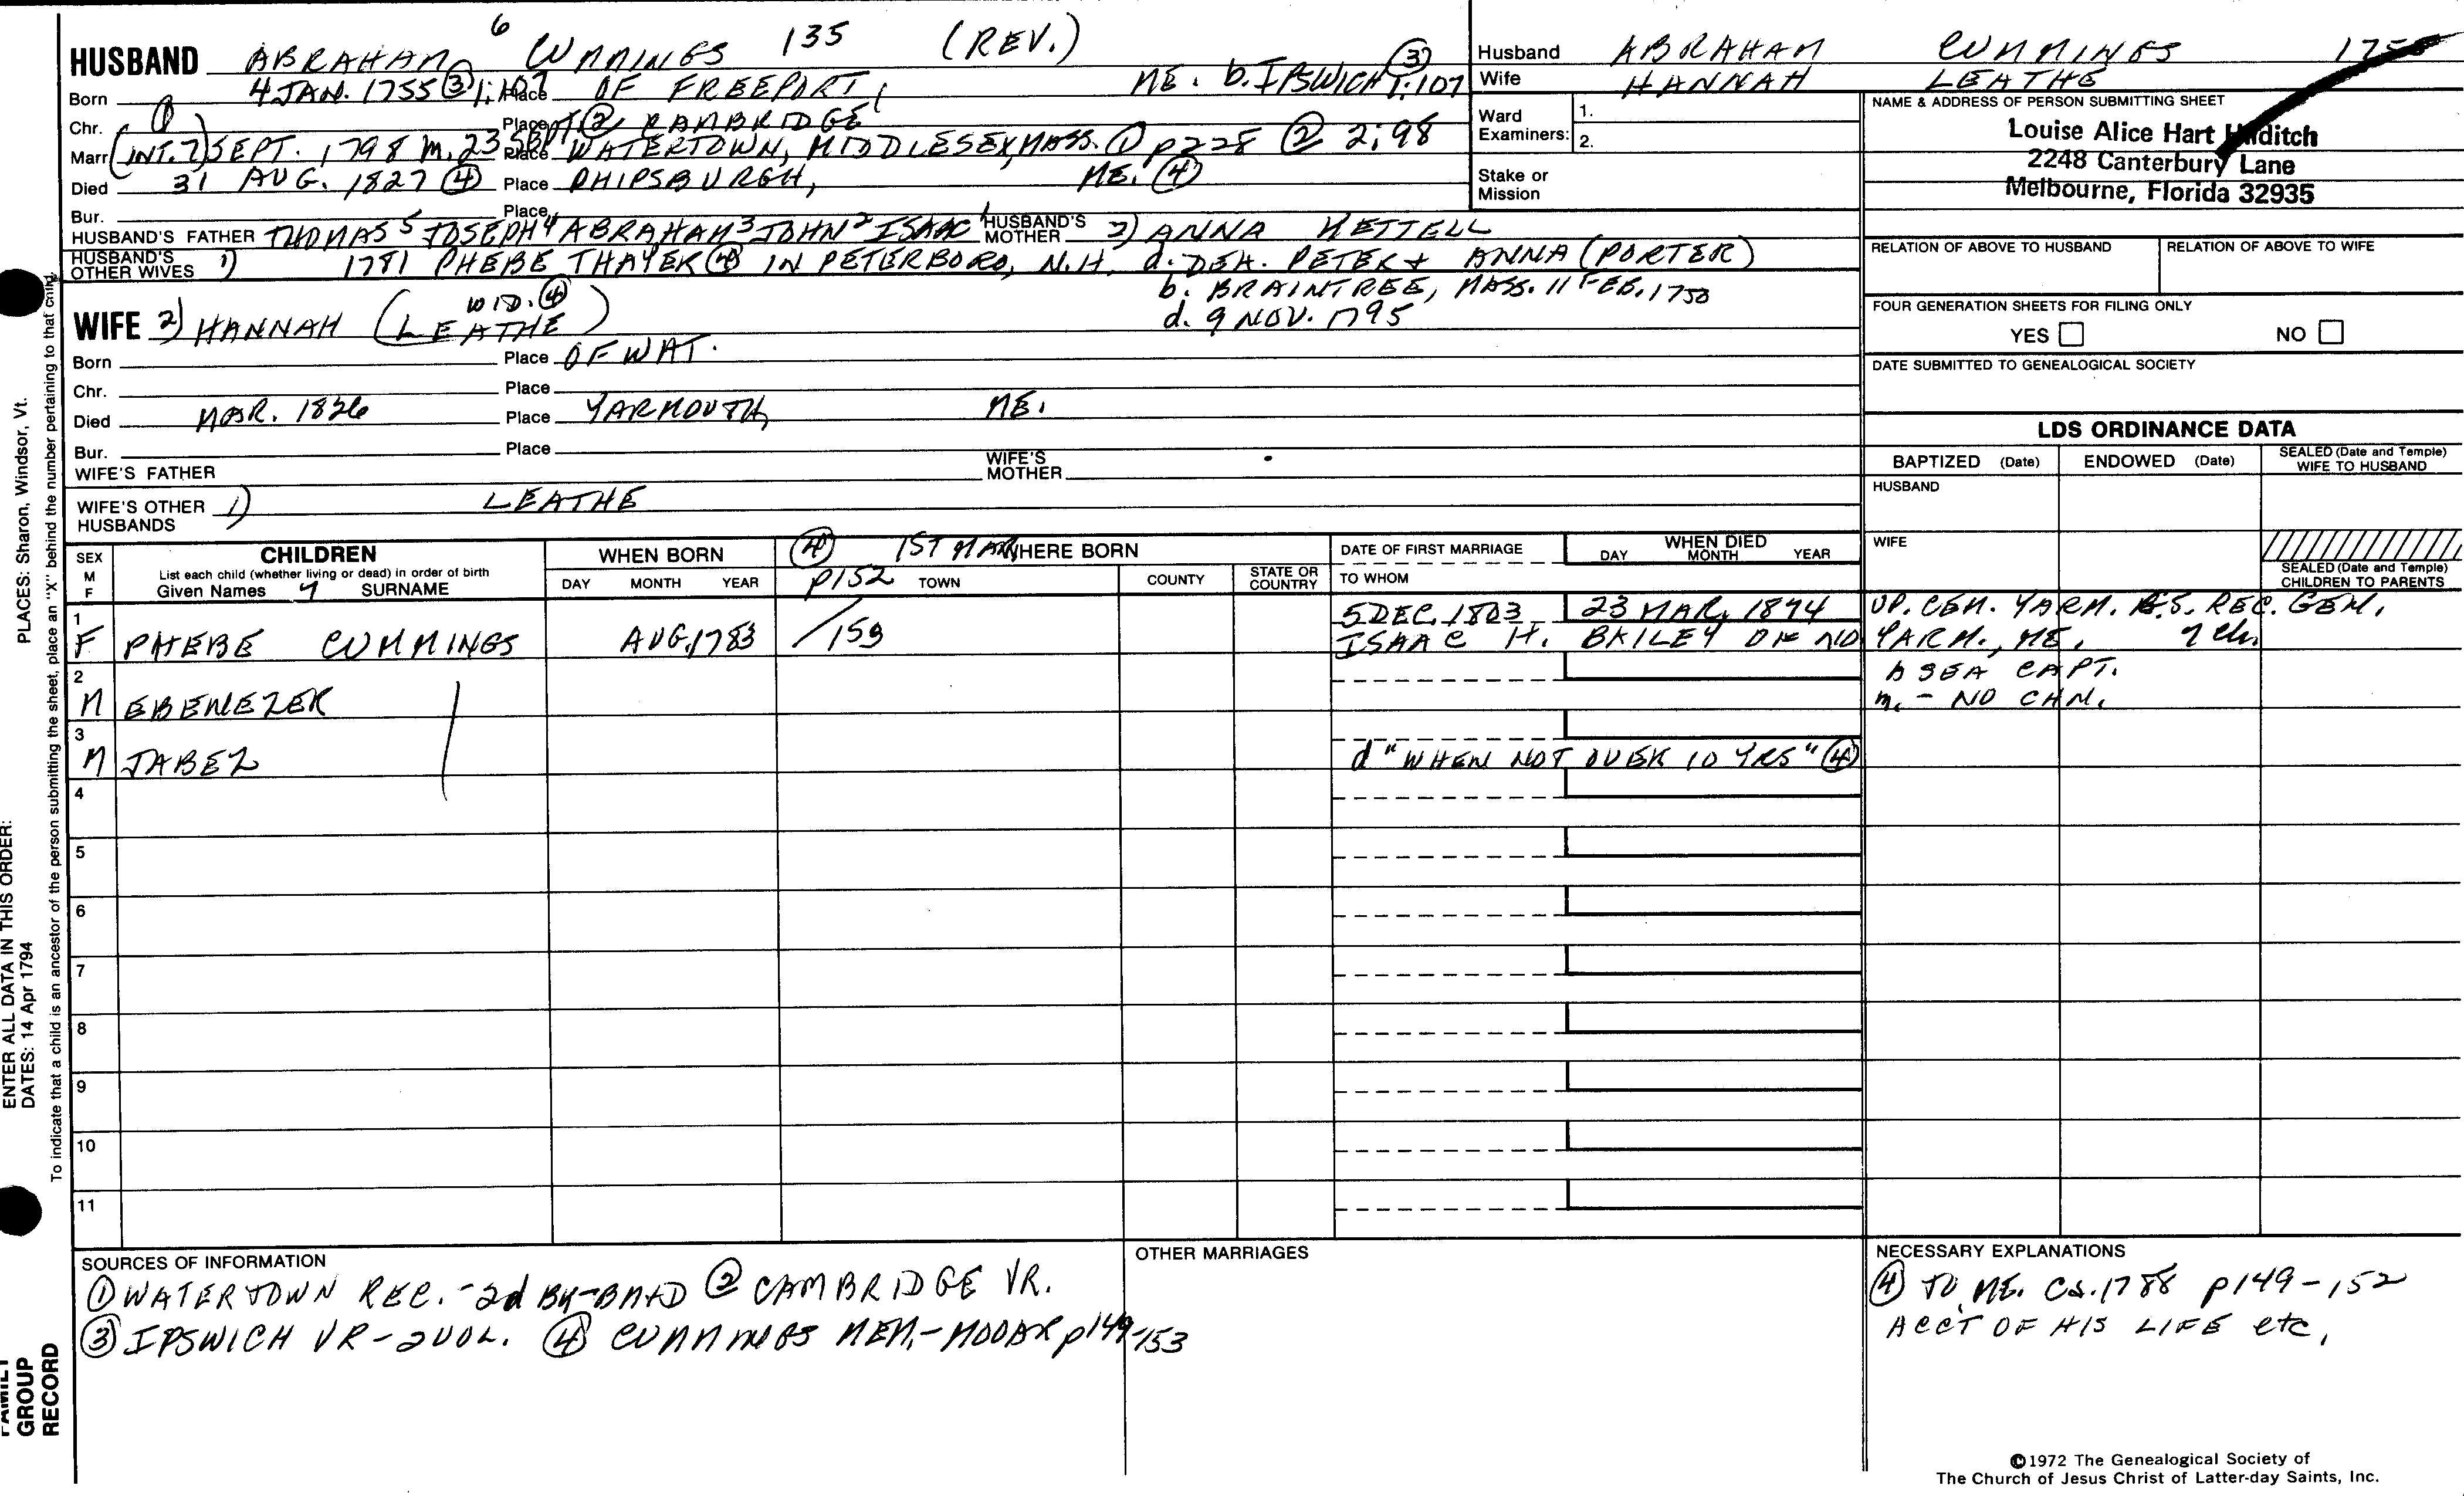 HUSBAND ABRAHAM 6 CUMMINGS 135 (REV.)
Born 4 JAN. 1755 ③ 1:107 Place OF FREEPORT, ME. b. IPSWICH ③ 1:107
Chr. ① Place ② CAMBRIDGE
Marr (INT. 7) SEPT. 1798 m. 23 SEPT. Place WATERTOWN, MIDDLESEX, MASS. ① p228 ② 2:98
Died 31 AUG. 1827 ④ Place PHIPSBURGH, ME. ④
Bur. Place
HUSBAND'S FATHER THOMAS 5 JOSEPH 4 ABRAHAM 3 JOHN 2 ISAAC 1 HUSBAND'S MOTHER 2) ANNA KETTELL
HUSBAND'S OTHER WIVES 1) 1781 PHEBE THAYER ④ IN PETERBORO, N.H. d. DEA. PETER & ANNA (PORTER)
b. BRAINTREE, MASS. 11 FEB. 1753
d. 9 NOV. 1795
WIFE 2) HANNAH (LEATHE) WID. ④
Born Place OF WAT.
Chr. Place
Died MAR. 1826 Place YARMOUTH, ME.
Bur. Place
WIFE'S FATHER WIFE'S MOTHER
WIFE'S OTHER HUSBANDS 1) LEATHE
Husband ABRAHAM CUMMINGS 1755
Wife HANNAH LEATHE
Ward Examiners: 1. 2.
Stake or Mission
NAME & ADDRESS OF PERSON SUBMITTING SHEET
Louise Alice Hart
2248 Canterbury Lane
Melbourne, Florida 32935
RELATION OF ABOVE TO HUSBAND RELATION OF ABOVE TO WIFE
FOUR GENERATION SHEETS FOR FILING ONLY
YES NO
DATE SUBMITTED TO GENEALOGICAL SOCIETY
LDS ORDINANCE DATA
BAPTIZED (Date) ENDOWED (Date) SEALED (Date and Temple) WIFE TO HUSBAND
HUSBAND
WIFE
SEALED (Date and Temple) CHILDREN TO PARENTS
SEX M F
CHILDREN
List each child (whether living or dead) in order of birth
Given Names 7 SURNAME
WHEN BORN
DAY MONTH YEAR
④ 1ST MAR WHERE BORN
p152 TOWN COUNTY STATE OR COUNTRY
DATE OF FIRST MARRIAGE
TO WHOM
WHEN DIED
DAY MONTH YEAR
1 F PHEBE CUMMINGS AUG. 1783 /153 5 DEC. 1803 23 MAR. 1874 UP. CEM. YARM. REC. CEM.
ISAAC H. BAILEY YARM., ME. 7 ch.
2 M EBENEZER A SEA CAPT.
m. - NO CHN.
3 M JABEZ d "WHEN NOT OVER 10 YRS" ④
4
5
6
7
8
9
10
11
SOURCES OF INFORMATION
① WATERTOWN REC. - 2d BK - BM+D ② CAMBRIDGE VR.
③ IPSWICH VR - 2 VOL. ④ CUMMINGS MEM. - MOOAR p149-153
OTHER MARRIAGES
NECESSARY EXPLANATIONS
④ TO ME. CA. 1788 p149-152
ACCT OF HIS LIFE etc.
©1972 The Genealogical Society of
The Church of Jesus Christ of Latter-day Saints, Inc.
PLACES: Sharon, Windsor, Vt.
ENTER ALL DATA IN THIS ORDER:
DATES: 14 Apr 1794
To indicate that a child is an ancestor of the person submitting the sheet, place an "X" behind the number pertaining to that child.
FAMILY GROUP RECORD